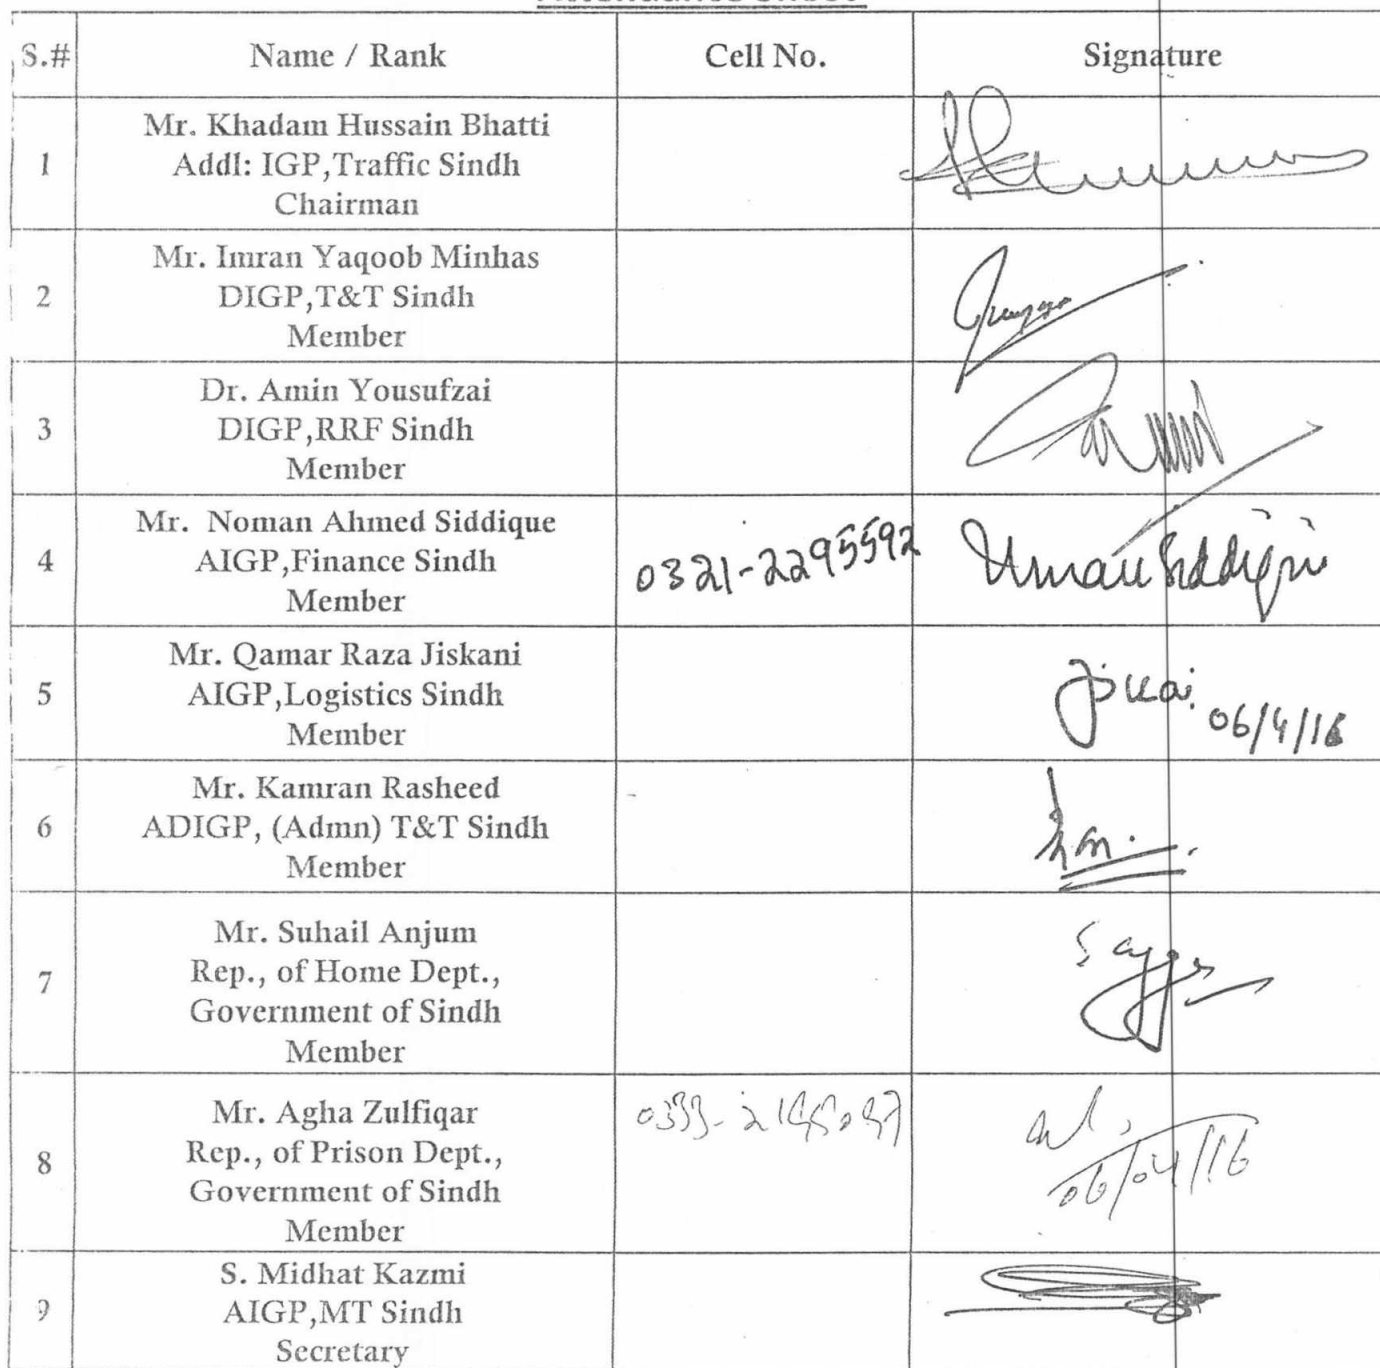 Attendance Sheet
S.# Name / Rank Cell No. Signature
Mr. Khadam Hussain Bhatti
1 Addl: IGP,Traffic Sindh
Chairman
Mr. Imran Yaqoob Minhas
2 DIGP,T&T Sindh
Member
Dr. Amin Yousufzai
3 DIGP,RRF Sindh
Member
Mr. Noman Ahmed Siddique
4 AIGP,Finance Sindh 0321-2295592
Member
Mr. Qamar Raza Jiskani
5 AIGP,Logistics Sindh
Member 06/4/16
Mr. Kamran Rasheed
6 ADIGP, (Admn) T&T Sindh
Member
Mr. Suhail Anjum
7 Rep., of Home Dept.,
Government of Sindh
Member
Mr. Agha Zulfiqar
8 Rep., of Prison Dept.,
Government of Sindh 06/04/16
Member
S. Midhat Kazmi
9 AIGP,MT Sindh
Secretary